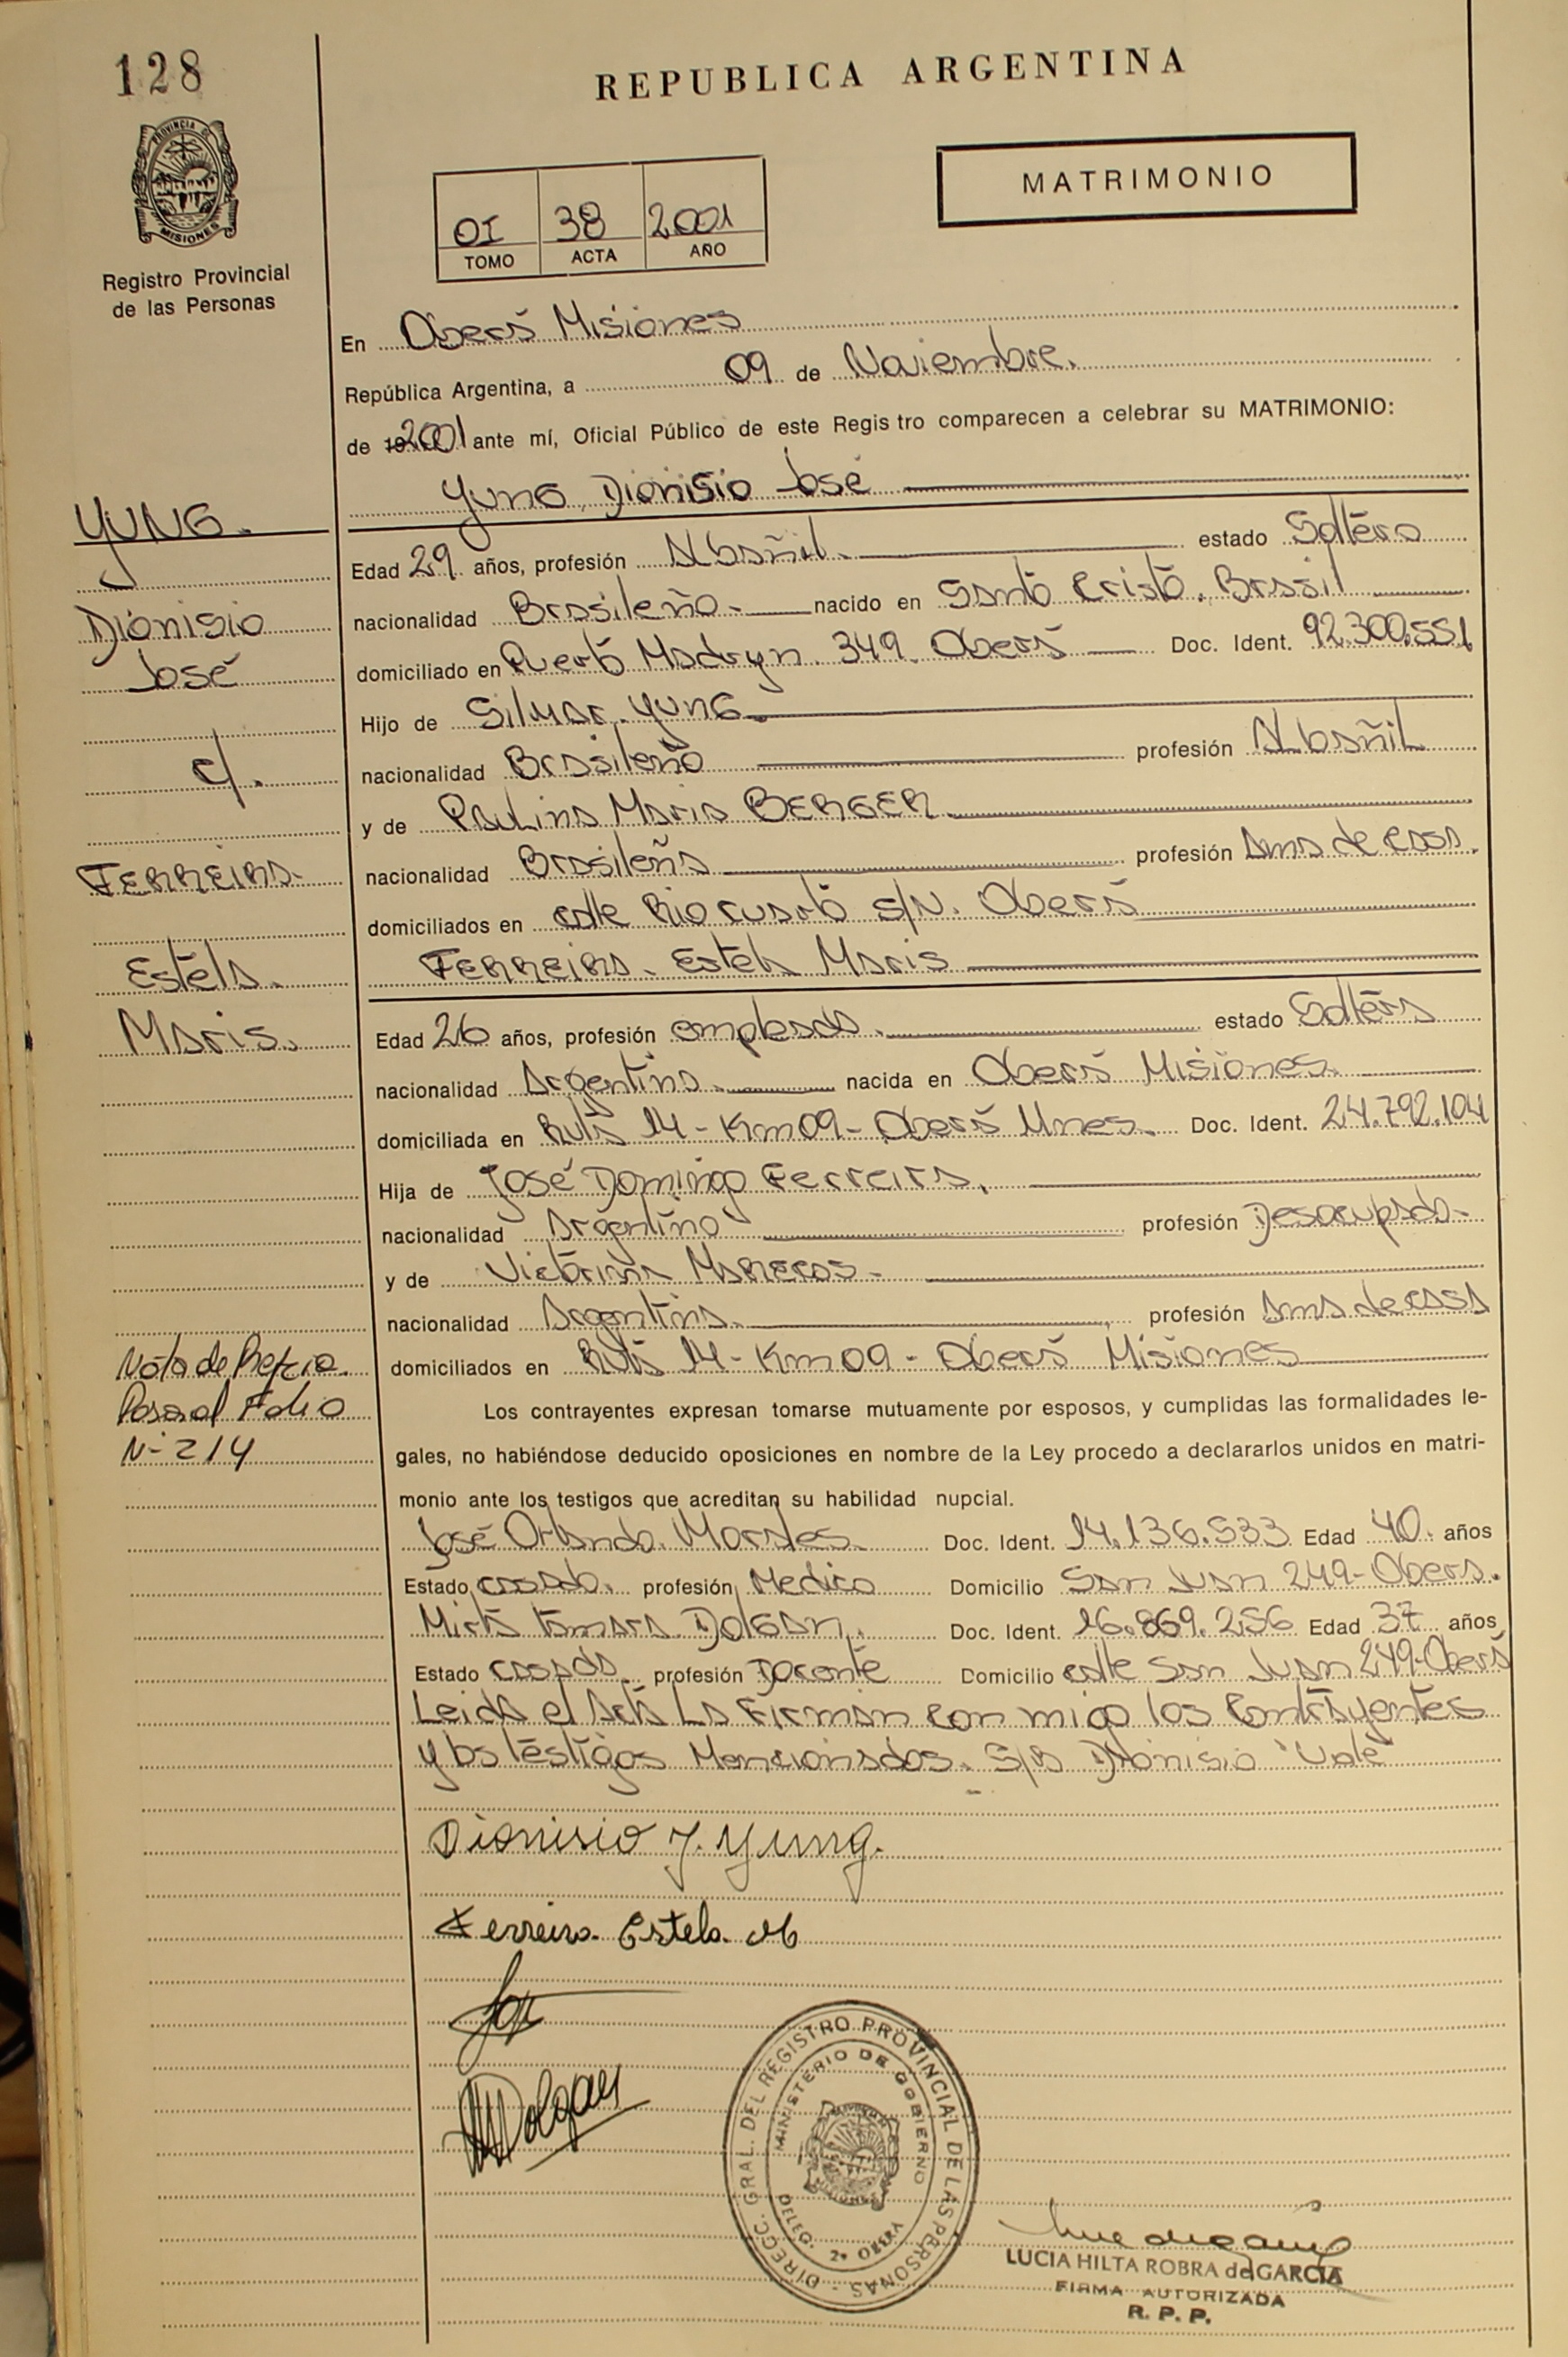 128
REPUBLICA ARGENTINA
PROVINCIA DE
MISIONES
Registro Provincial
de las Personas
MATRIMONIO
01 38 2001
TOMO ACTA AÑO
En Oberá Misiones
República Argentina, a 09 de Noviembre.
de 19 2001 ante mí, Oficial Público de este Regis tro comparecen a celebrar su MATRIMONIO:
Yung Dionisio José
YUNG.
Dionisio
José
c/.
FERREIRA.
Estela.
Maris.
Edad 29 años, profesión Albañil. estado Soltero
nacionalidad Brasileño. nacido en Santo Cristo. Brasil
domiciliado en Puerto Madryn. 349. Oberá Doc. Ident. 92.300.551
Hijo de Silmar. YUNG.
nacionalidad Brasileño profesión Albañil
y de Paulina Maria BERGER.
nacionalidad Brasileña profesión Ama de casa.
domiciliados en calle Rio cuarto s/N. Oberá
FERREIRA. Estela Maris
Edad 26 años, profesión empleada. estado Soltera
nacionalidad Argentina. nacida en Oberá Misiones.
domiciliada en Ruta 14 - Km 09 - Oberá Mnes. Doc. Ident. 24.792.104
Hija de José Domingo Ferreira.
nacionalidad Argentino profesión Desocupado.
y de Victorina MARECOS.
nacionalidad Argentina. profesión Ama de casa
domiciliados en Ruta 14 - Km 09 - Oberá Misiones
Nota de Refcia.
Pasa al Folio
N- 214
Los contrayentes expresan tomarse mutuamente por esposos, y cumplidas las formalidades le-
gales, no habiéndose deducido oposiciones en nombre de la Ley procedo a declararlos unidos en matri-
monio ante los testigos que acreditan su habilidad nupcial.
José Orlando. Morales. Doc. Ident. 14.136.533 Edad 40. años
Estado casado. profesión Medico Domicilio San Juan 249 - Obera.
Mirta tamara Dolgan. Doc. Ident. 16.869.256 Edad 37 años
Estado casada profesión Docente Domicilio calle San Juan 249 - Oberá
Leida el Acta La Firman con migo los Contrayentes
y los testigos Mencionados. S/B Dionisio "Vale"
Dionisio J. Yung.
Ferreira. Estela. M
Dolgan
DIRECC. GRAL. DEL REGISTRO PROVINCIAL DE LAS PERSONAS -
MINISTERIO DE GOBIERNO
DELEG. 2ª OBERA
LUCIA HILTA ROBRA de GARCIA
FIRMA AUTORIZADA
R. P. P.